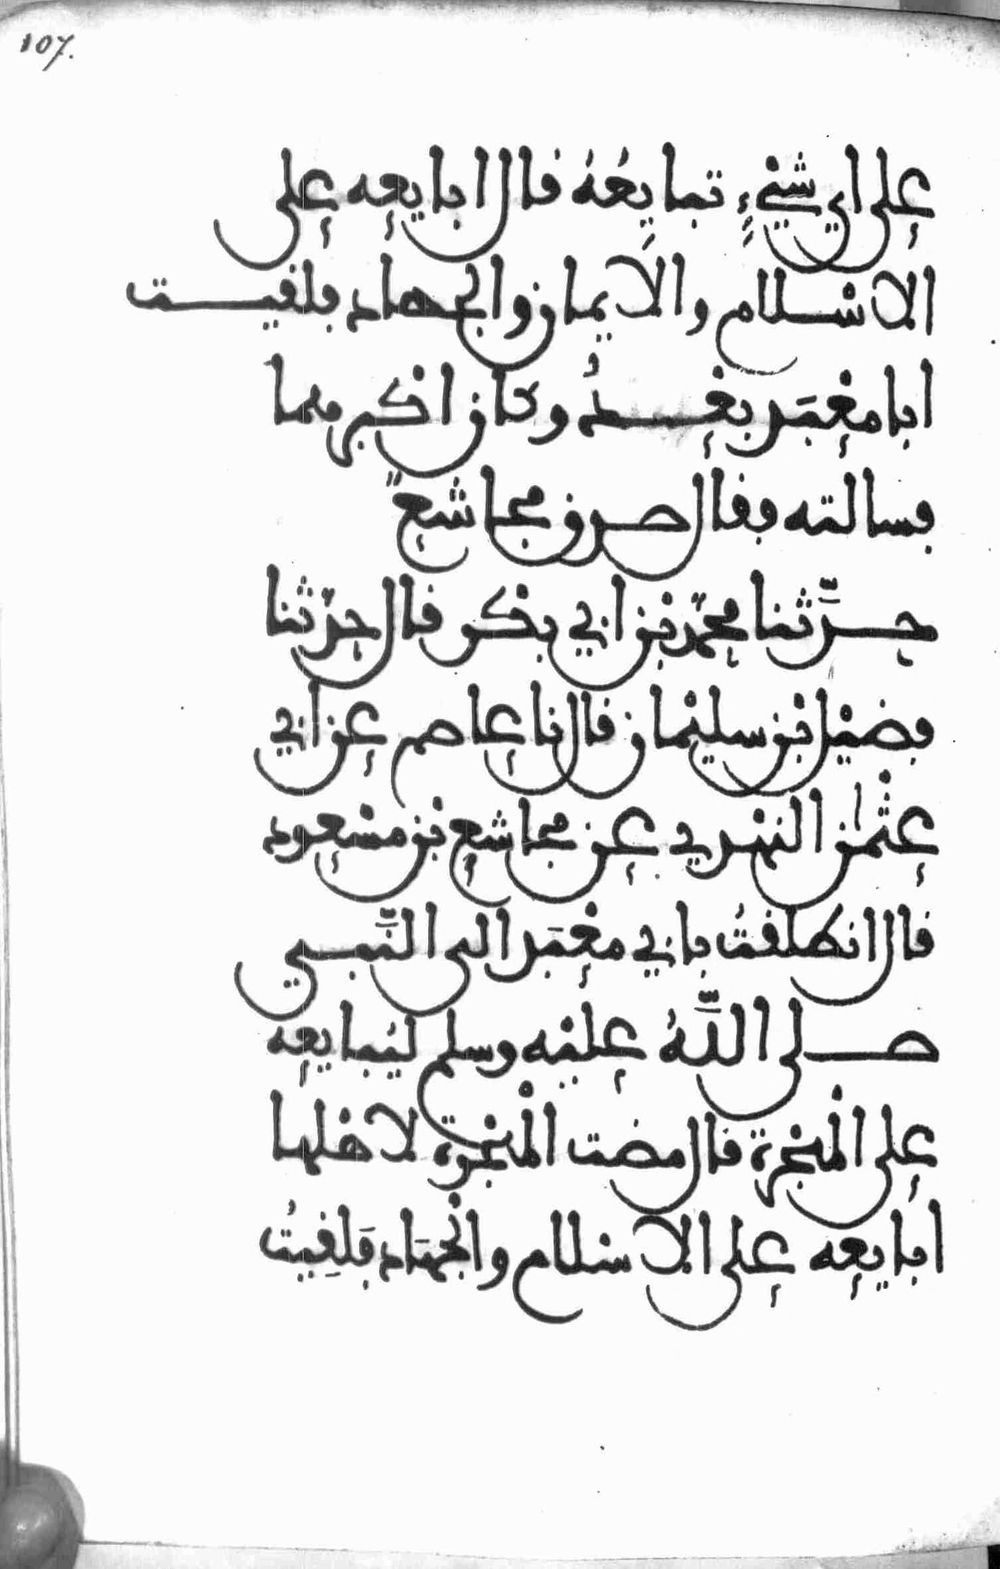 107.
على اي شيء تبايعه فال ابايعه على
الاسلام والايمان والجهاد فلفيت
ابا معبد بعد وكان اكبرهما
فسالته ففال صدق مجاشع
حدثنا محمد بن ابي بكر فال حدثنا
فضيل بن سليمان فال نا عاصم عن ابي
عثمان النهدي عن مجاشع بن مسعود
فال انطلفت بابي معبد الى النبي
صلى الله عليه وسلم ليبايعه
على الهجرة فال مضت الهجرة لاهلها
ابايعه على الاسلام والجهاد فلفيت